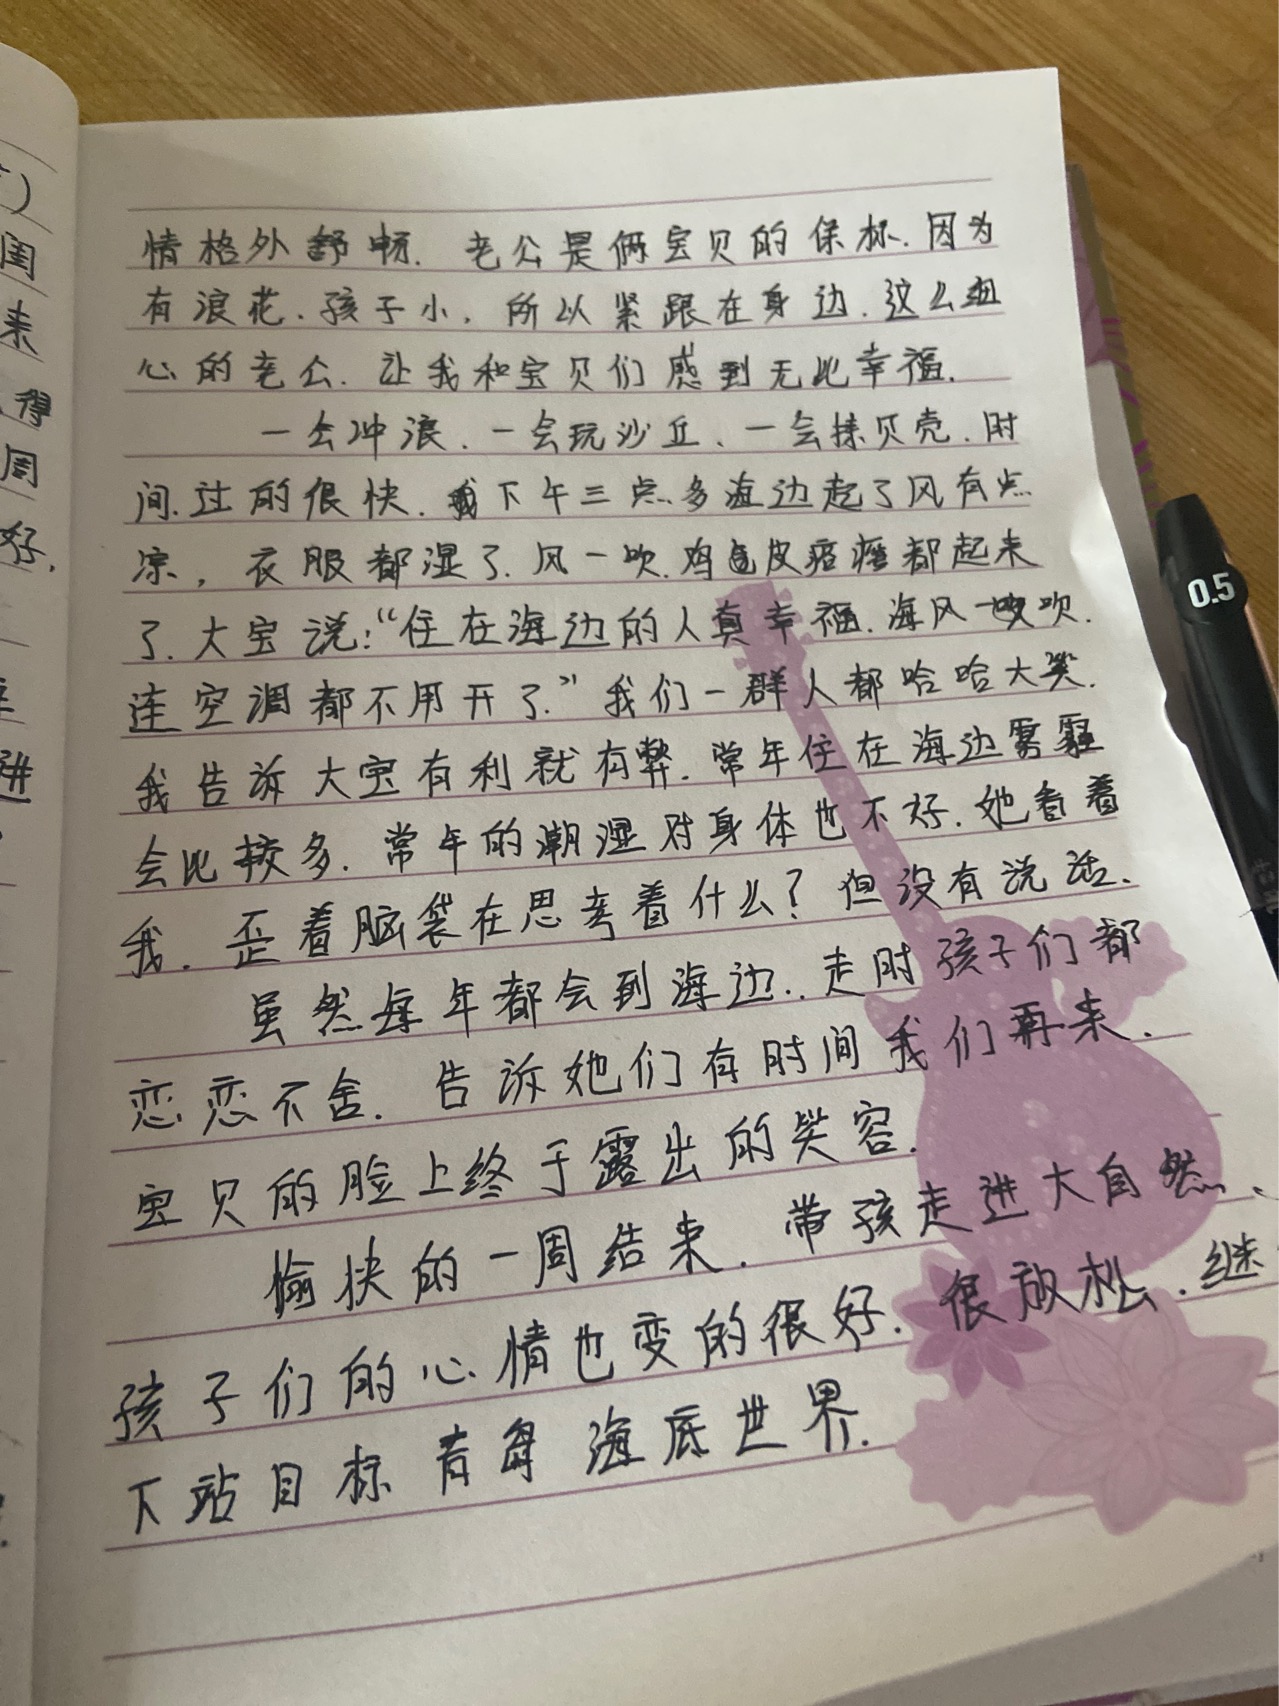 情格外舒畅.老公是俩宝贝的保标.因为
有浪花.孩子小,所以紧跟在身边.这么细
心的老公.让我和宝贝们感到无比幸福.
一会冲浪.一会玩沙丘、一会抹贝壳.时
间.过的很快.我下午三点多海边起了风有点
凉,衣服都湿了.风一吹.鸡皮疙瘩都起来
了.大宝说:“住在海边的人真幸福.海风一吹.
连空调都不用开了.”我们一群人都哈哈大笑.
我告诉大宝有利就有弊.常年住在海边雾霾
会比较多.常年的潮湿对身体也不好.她看着
我.歪着脑袋在思考着什么?但没有说话.
虽然每年都会到海边..走时孩子们都
恋恋不舍.告诉她们有时间我们再来.
宝贝的脸上终于露出的笑容.
愉快的一周结束.带孩走进大自然、
孩子们的心情也变的很好.很放松.继
下站目标青岛海底世界.
得
周
好,
围
来
进
0.5